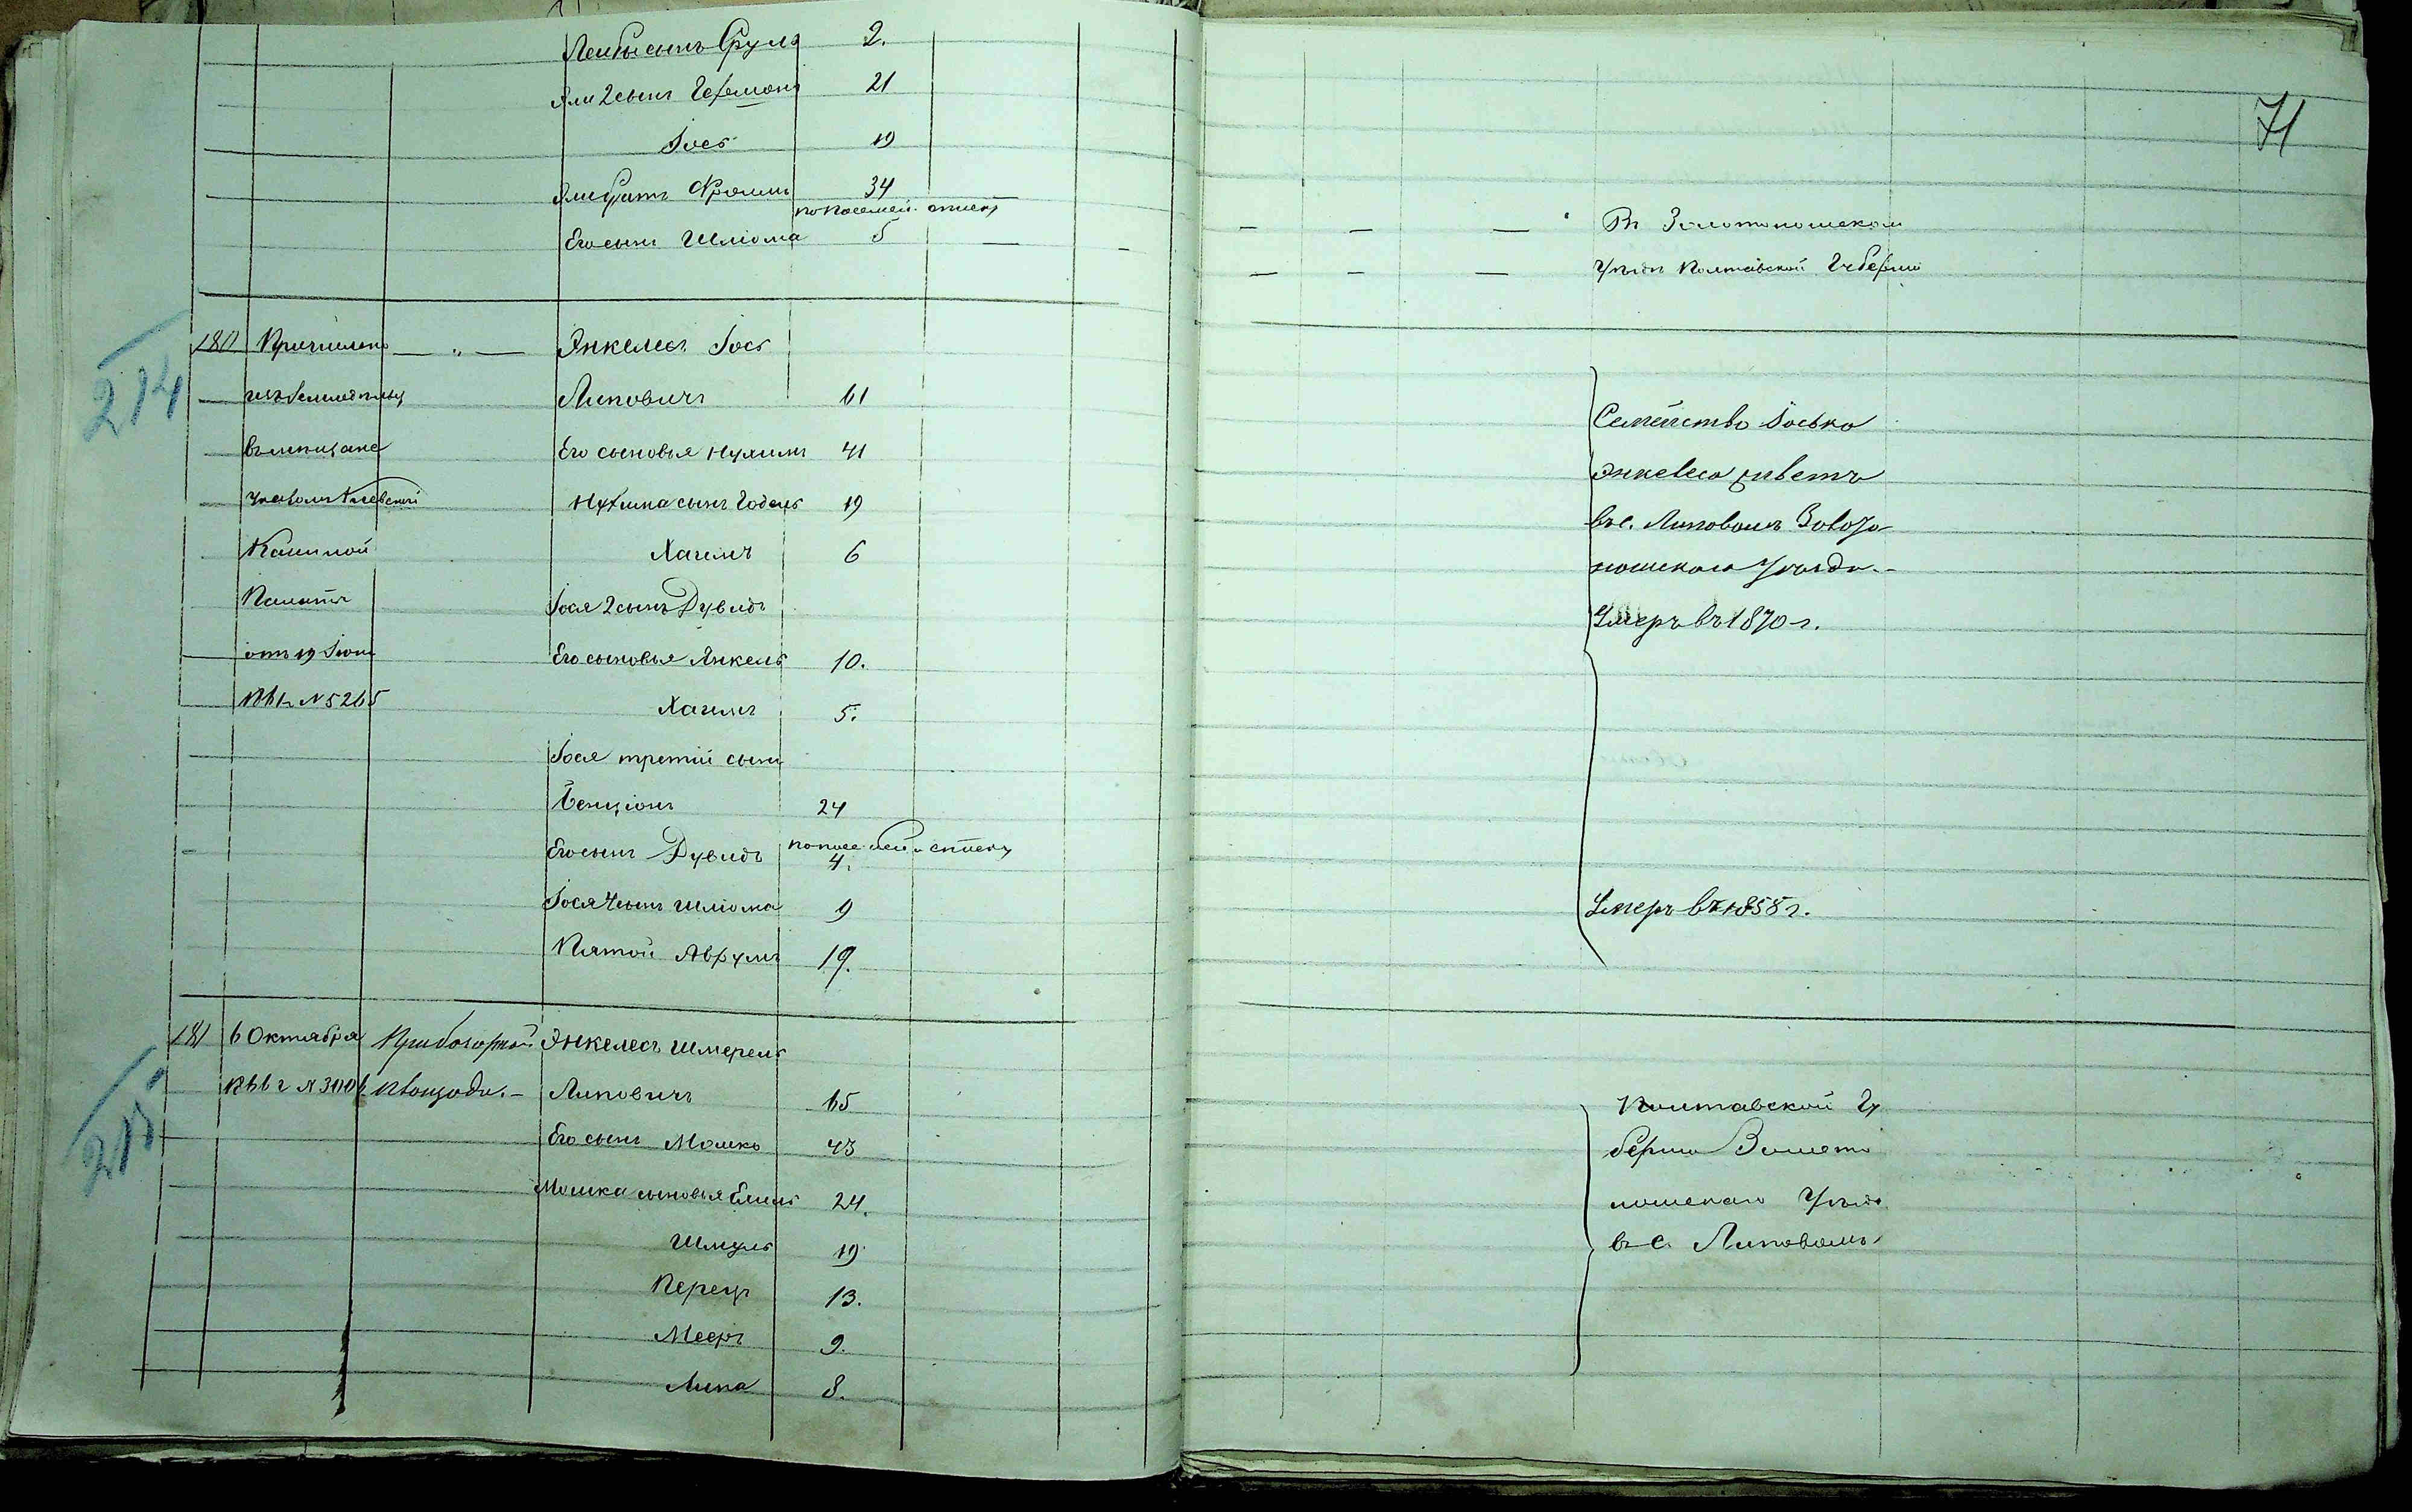 Лейбы сынъ Сруль 2.
Эли 2 сынъ Гершонъ 21
Іось 19
Эли братъ Фроимъ 34
по посемей. списку
Его сынъ Шліома 5 — —
180 Причислено — „ — Энкелесъ Іось
изъ земледельц Липовичъ 61
въ мещане Его сыновья Нухимъ 41
указомъ Киевской Нухима сынъ Годель 19
Казенной Хаимъ 6
Палаты Іося 2 сынъ Дувидъ
отъ 19 Іюня Его сыновья Янкель 10.
№ 5265 Хаимъ 5.
Іося третій сынъ
Бенціонъ 24
по посемей. списку
Его сынъ Дувидъ 4.
Іося 4 сынъ Шліома 9
Пятой Аврумъ 19.
181 6 Октября Энкелесъ Шмерель
Липовичъ 65
Его сынъ Мошко 43
Мошка сыновья Елиль 24.
Шмуль 19
Перецъ 13.
Мееръ 9.
Липа 8.
214
215
71
— — — Въ Золотоношскомъ
— — — Уѣздѣ Полтавской Губерніи
Семейство Іоська
Энкелеса живетъ
въ с. Липовомъ Золото
ношскаго Уѣзда.-
Умеръ въ 1870 г.
Умеръ въ 1858 г.
Полтавской Гу
берніи Золото
ношскаго Уѣзда
въ с. Липовомъ